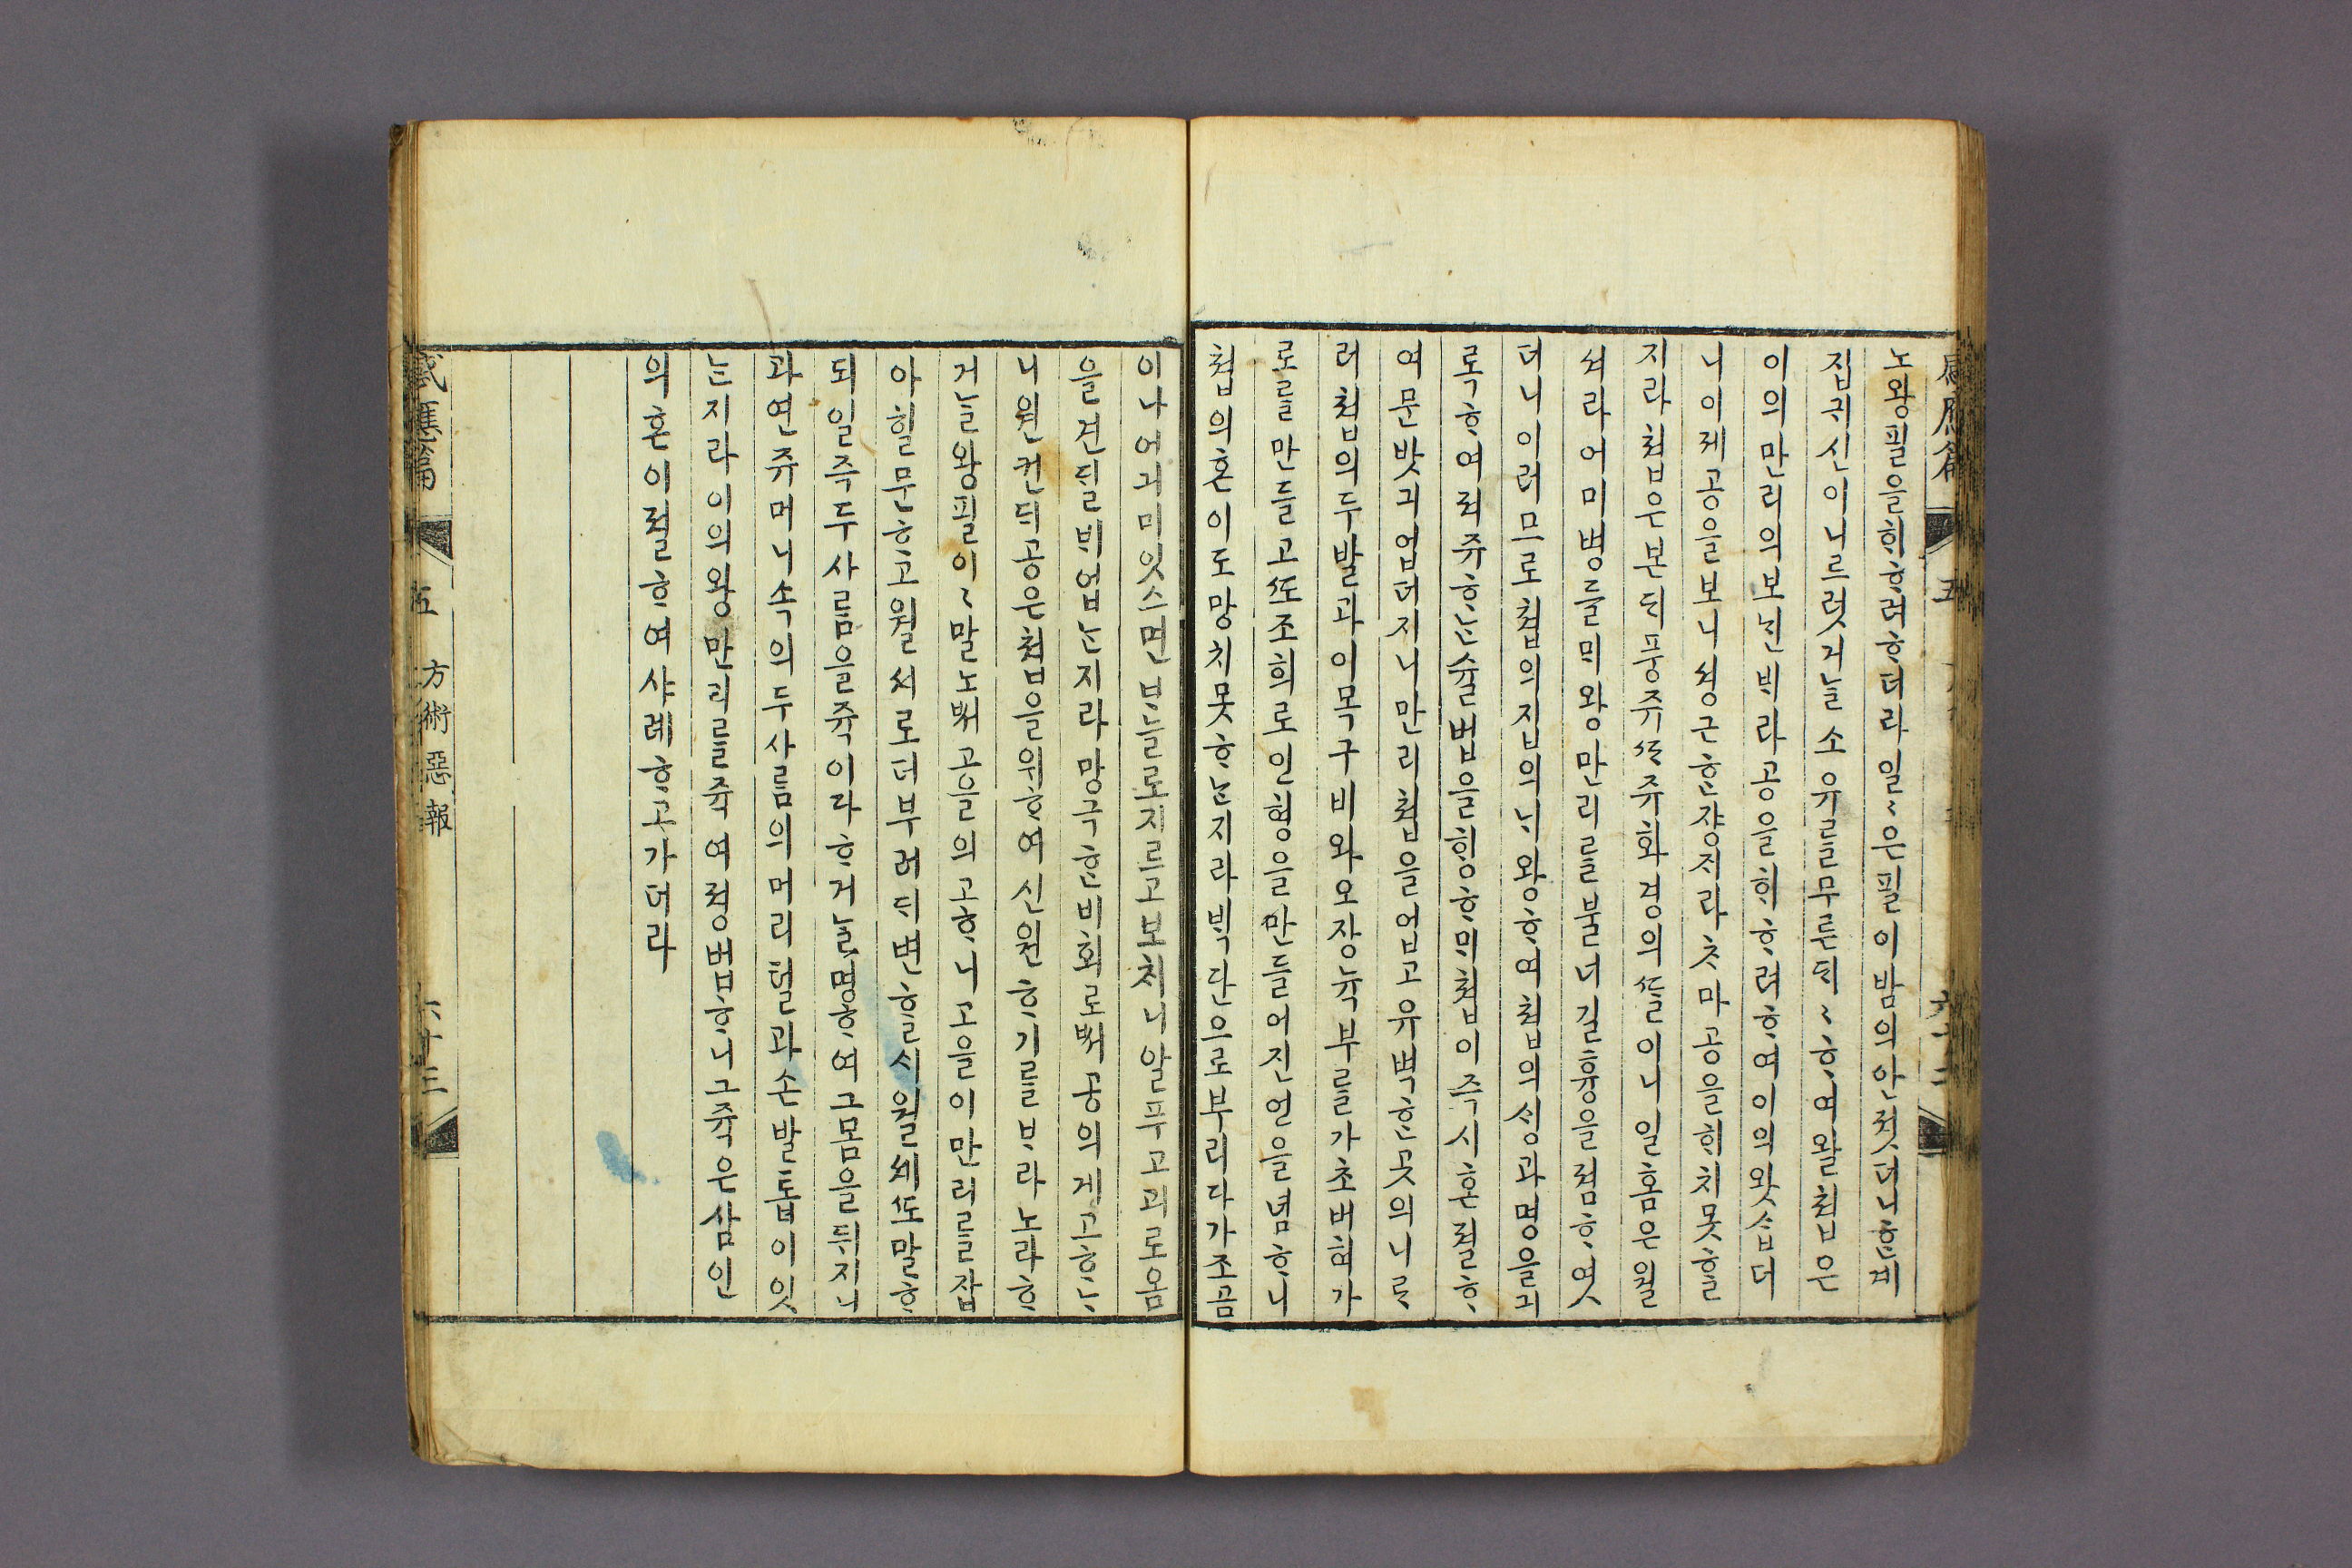 노왕필을ᄒᆡᄒᆞ려ᄒᆞ더라일〻은필이밤의안젓더니ᄒᆞᆫ비
집귀신이니르럿거ᄂᆞᆯ소유ᄅᆞᆯ무른ᄃᆡ〻ᄒᆞ여왈쳡은
이의만리의보ᄂᆡᆫᄇᆡ라공을ᄒᆡᄒᆞ려ᄒᆞ여이의왓ᄉᆞᆸ더
니이제공을보니셩근ᄒᆞᆫ쟝ᄌᆡ라ᄎᆞ마공을ᄒᆡ치못ᄒᆞᆯ
지라쳡은본ᄃᆡ풍쥬ᄯᅡ쥬화경의ᄯᆞᆯ이니일홈은월
셔라어미병들ᄆᆡ왕만리ᄅᆞᆯ불너길흉을졈ᄒᆞ엿
더니이러므로쳡의집의ᄂᆡ왕ᄒᆞ여쳡의셩과명을긔
록ᄒᆞ여져쥬ᄒᆞᄂᆞᆫ슐법을ᄒᆡᆼᄒᆞᄆᆡ쳡이즉시혼졀ᄒᆞ
여문밧긔업더지니만리쳡을업고유벽ᄒᆞᆫ곳의니ᄅᆞ
러쳡의두발과이목구비와오장뉵부ᄅᆞᆯ가초버혀가
로ᄅᆞᆯ만들고ᄯᅩ조희로인형을만들어진언을념ᄒᆞ니
쳡의혼이도망치못ᄒᆞᄂᆞᆫ지라ᄇᆡᆨ단으로부리다가조곰
이나어긔미잇스면ᄇᆞᄂᆞᆯ로지르고보ᄎᆡ니알푸고괴로옴
을견ᄃᆡᆯᄇᆡ업ᄂᆞᆫ지라망극ᄒᆞᆫᄇᆡ회로ᄡᅥ공의게고ᄒᆞᄂᆞ
니원컨ᄃᆡ공은쳡을위ᄒᆞ여신원ᄒᆞ기ᄅᆞᆯᄇᆞ라노라ᄒᆞ
거ᄂᆞᆯ왕필이〻말노ᄡᅥ고을의고ᄒᆞ니고을이만리ᄅᆞᆯ잡
아힐문ᄒᆞ고월셔로더부러ᄃᆡ변ᄒᆞᆯᄉᆡ월셰ᄯᅩ말ᄒᆞ
되일즉두사ᄅᆞᆷ을쥭이라ᄒᆞ거ᄂᆞᆯ명ᄒᆞ여그몸을뒤지니
과연쥬머니속의두사ᄅᆞᆷ의머리털과손발톱이잇
ᄂᆞᆫ지라이의왕만리ᄅᆞᆯ쥭여졍법ᄒᆞ니그쥭은삼인
의혼이졀ᄒᆞ여샤례ᄒᆞ고가더라
感應篇 五 方術惡報 六十三